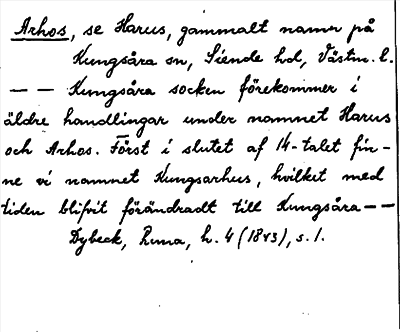 Arhos, se Harus, gammalt namn på
Kungsåra sn, Siende hd, Västm. l.
— — Kungsåra socken förekommer i
äldre handlingar under namnet Harus
och Arhos. Först i slutet af 14-talet fin-
ne vi namnet Kungsarhus, hvilket med
tiden blifvit förändradt till Kungsåra — —
Dybeck, Runa, h. 4 (1843), s. 1.